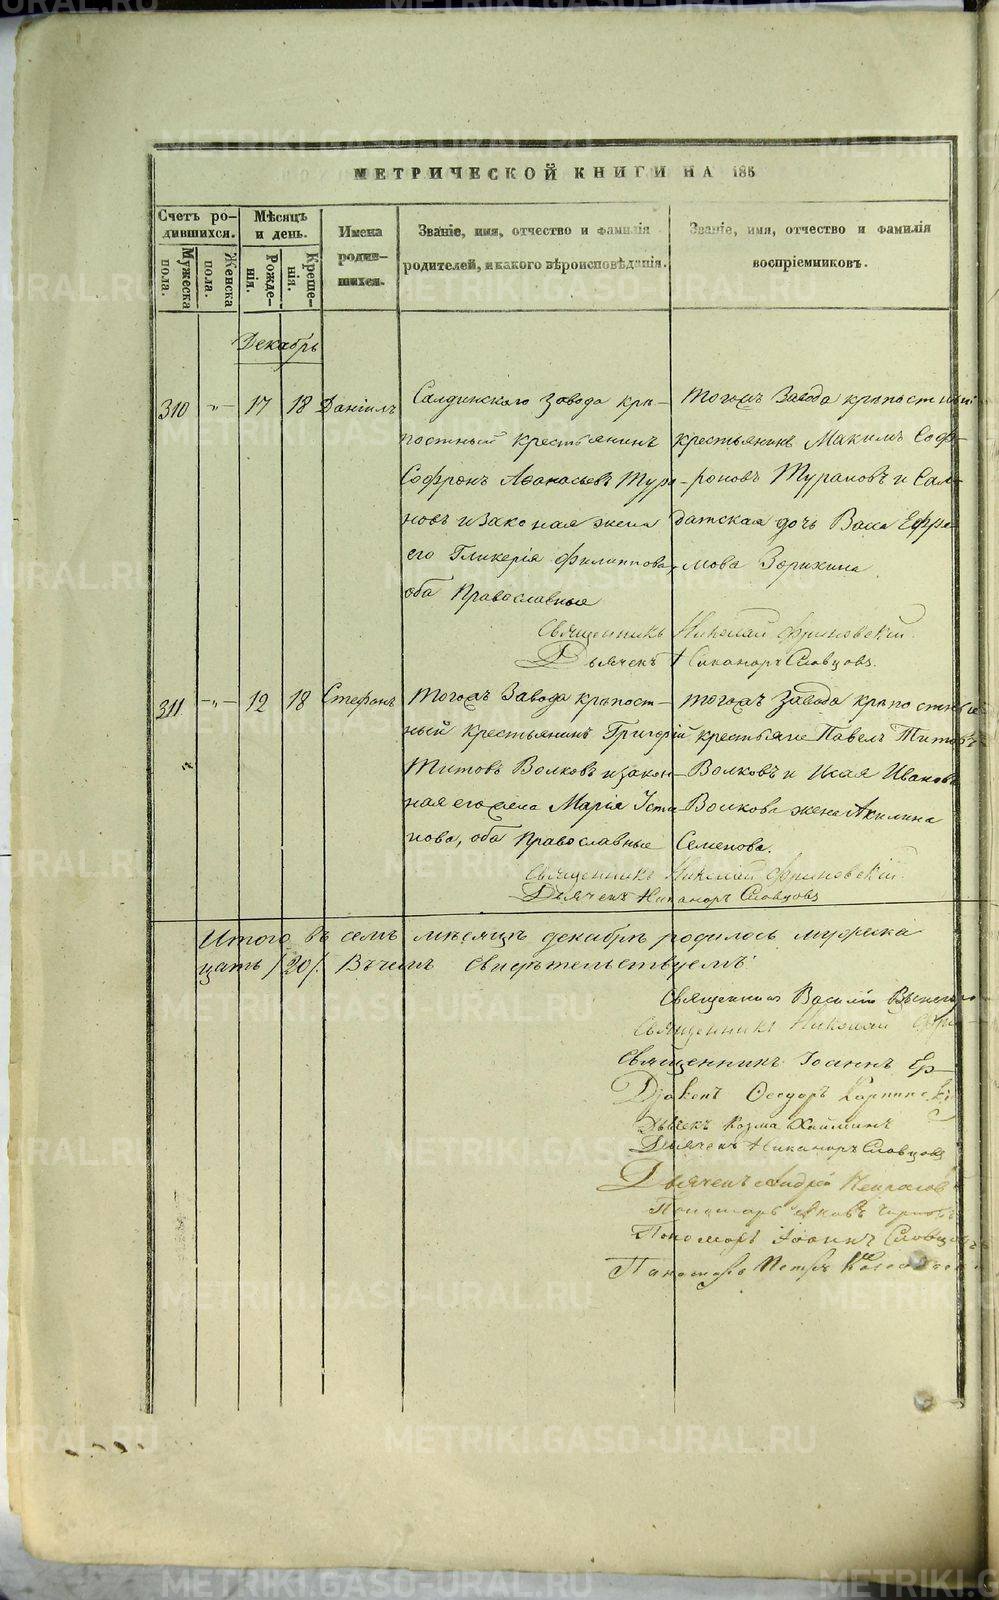 МЕТРИЧЕСКОЙ КНИГИ НА 185
Счетъ ро-
дившихся.
Мужеска
пола.
Женска
пола.
Мѣсяцъ
и день.
Рожде-
нія.
Креще-
нія.
Имена
родив-
шихся.
Званіе, имя, отчество и фамилія
родителей, и какого вѣроисповѣданія.
Званіе, имя, отчество и фамилія
воспріемниковъ.
Декабрь
310 -"- 17 18 Даніилъ
Салдинскаго завода крѣ-
постный крестьянинъ
Софронъ Аѳанасьевъ Тура-
новъ и законная жена
его Гликерія Филиппова,
оба Православные
Тогожъ Завода крѣпостный
крестьянинъ Макимъ Соф-
роновъ Турановъ и Сал-
датская дочь Васа Ефре-
мова Зорихина
Священникъ Николай Флоровскій.
Дьячекъ Никаноръ Словцовъ.
311 -"- 12 18 Стефанъ
Тогожъ Завода крѣпост-
ный крестьянинъ Григорій
Титовъ Волковъ и закон-
ная его жена Марія Уста-
нова, оба Православные
тогожъ завода крѣпостные
крестьяне Павелъ Титовъ
Волковъ и Исая Иванова
Волкова жена Акилина
Семенова.
Священникъ Николай Флоровскій.
Дьячекъ Никаноръ Словцовъ
Итого въ семъ мѣсяцѣ декабрѣ родилось мужеска
цать /20/. Въ чемъ свидѣтельствуемъ:
Священникъ Василій
Священникъ Николай
Священникъ Іоаннъ
Діаконъ Ѳеодоръ
Дьячекъ Козма
Дьячекъ Никаноръ Словцовъ
Дьячекъ Андрей Некрасовъ
Пономарь Яковъ
Пономарь Іоаннъ Словцовъ
Пономарь Петръ
METRIKI.GASO-URAL.RU